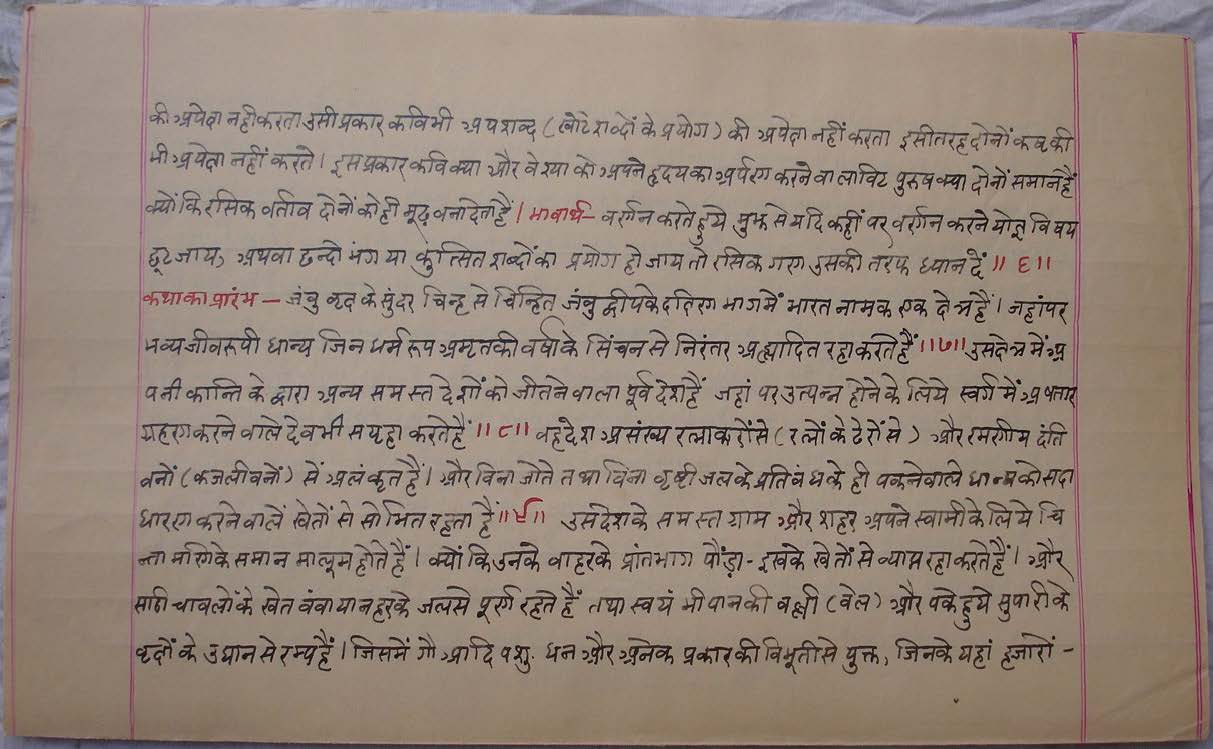 की अपेक्षा नही करता उसी प्रकार कवि भी अपशब्द (खोटे शब्दों के प्रयोग) की अपेक्षा नहीं करता इसी तरह दोनों कवकी
भी अपेक्षा नहीं करते। इस प्रकार कवि क्या और वेश्या को अपने हृदय का अर्पण करने वाला विट पुरुष क्या दोनों समान हैं
क्यों कि रसिक वर्ताव दोनों को ही मूढ़ वना देता हैं। भावार्थ – वर्णन करते हुये मुझ से यदि कहीं पर वर्णन करने योग्य विषय
छूट जाय, अथवा छन्दो भंग या कुत्सित शब्दों का प्रयोग हो जाय तो रसिक गण उसकी तरफ ध्यान दें ॥ ६॥
कथा का प्रारंभ – जंबु वृक्ष के सुंदर चिन्ह से चिन्हित जंबु द्वीपके दक्षिण भाग में भारत नामक एक क्षेत्र हैं। जहां पर
भव्य जीव रूपी धान्य जिन धर्म रूप अमृत की वर्षा के सिंचन से निरंतर आह्लादित रहा करते हैं ॥७॥ उस क्षेत्र में अ
पनी कान्ति के द्वारा अन्य समस्त देशों को जीतने वाला पूर्व देश हैं जहां पर उत्पन्न होने के लिये स्वर्ग में अवतार
ग्रहण करने वाले देव भी स्पृहा करते हैं ॥८॥ वह देश असंख्य रत्नाकरों से (रत्नों के ढेरों से) और रमणीय दंति
वनों (कजली वनों) सें अलंकृत हैं। और विना जोते तथा विना वृष्टी जल के प्रतिबंध के ही पकने वाले धान्य को सदा
धारण करने वालें खेतों से सोभित रहता हैं ॥९॥ उस देश के समस्त ग्राम और शहर अपने स्वामी के लिये चि
न्ता मणि के समान मालूम होते हैं। क्यों कि उनके वाहर के प्रांत भाग पौंड़ा - इख के खेतों से व्याप्त रहा करते हैं। और
साठी चावलों के खेत वंवा या नहर के जल से पूर्ण रहते हैं तथा स्वयं भी पान की वल्ली (वेल) और पके हुये सुपारी के
वृक्षों के उद्यान से रम्य हैं। जिसमें गौ आदि पशु धन और अनेक प्रकार की विभूती से युक्त, जिनके यहां हजारों –